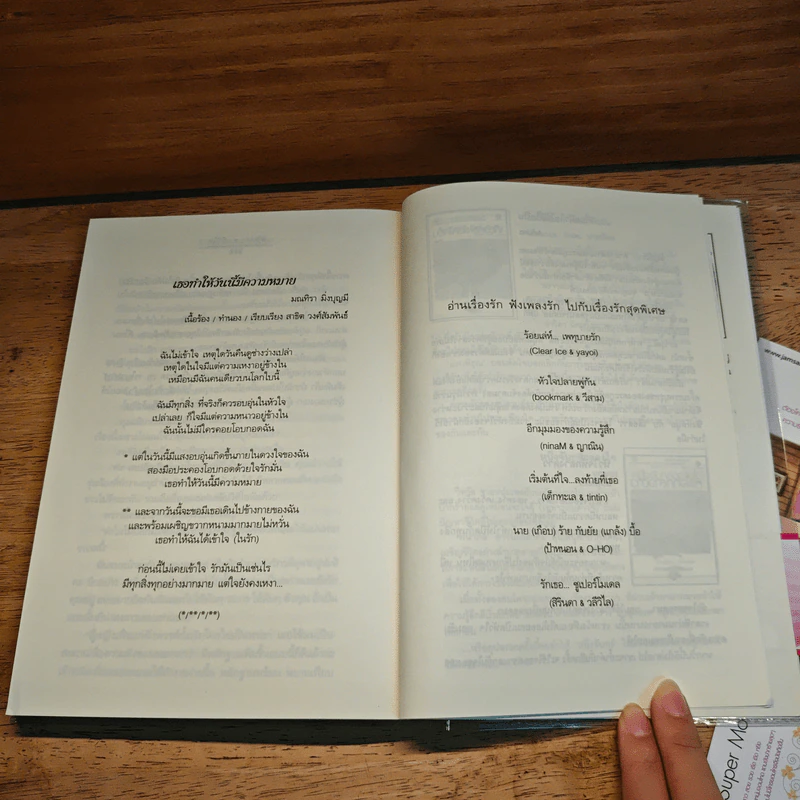 เธอทำให้วันนี้มีความหมาย
มณทิรา มิ่งบุญมี
เนื้อร้อง / ทำนอง / เรียบเรียง สาธิต วงศ์สัมพันธ์
ฉันไม่เข้าใจ เหตุใดวันคืนดูช่างว่างเปล่า
เหตุใดในใจมีแต่ความเหงาอยู่ข้างใน
เหมือนมีฉันคนเดียวบนโลกใบนี้
ฉันมีทุกสิ่ง ที่จริงก็ควรอบอุ่นในหัวใจ
เปล่าเลย ก็ใจมีแต่ความหนาวอยู่ข้างใน
ฉันนั้นไม่มีใครคอยโอบกอดฉัน
* แต่ในวันนี้มีแสงอบอุ่นเกิดขึ้นภายในดวงใจของฉัน
สองมือประคองโอบกอดด้วยใจรักมั่น
เธอทำให้วันนี้มีความหมาย
** และจากวันนี้จะขอมีเธอเดินไปข้างกายของฉัน
และพร้อมเผชิญขวากหนามมากมายไม่หวั่น
เธอทำให้ฉันได้เข้าใจ (ในรัก)
ก่อนนี้ไม่เคยเข้าใจ รักมันเป็นเช่นไร
มีทุกสิ่งทุกอย่างมากมาย แต่ใจยังคงเหงา...
(*/**/*/**)
อ่านเรื่องรัก ฟังเพลงรัก ไปกับเรื่องรักสุดพิเศษ
ร้อยเล่ห์... เพทุบายรัก
(Clear Ice & yayoi)
หัวใจปลายพู่กัน
(bookmark & วีสาม)
อีกมุมมองของความรู้สึก
(ninaM & ญาณิน)
เริ่มต้นที่ใจ...ลงท้ายที่เธอ
(เด็กทะเล & tintin)
นาย (เกือบ) ร้าย กับยัย (แกล้ง) บื้อ
(ป้าหนอน & O-HO)
รักเธอ... ซูเปอร์โมเดล
(สิรินดา & วลีวิไล)